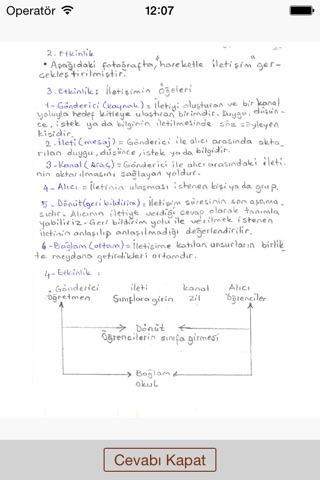 Operatör 12:07
2. Etkinlik
• Aşağıdaki fotoğrafta "hareketle iletişim" ger-
çekleştirilmiştir.
3. Etkinlik: İletişimin Öğeleri
1-Gönderici (kaynak) = İletiyi oluşturan ve bir kanal
yoluyla hedef kitleye ulaştıran birimdir. Duygu, düşün-
ce, istek ya da bilginin iletilmesinde söz söyleyen
kişidir.
2-İleti (mesaj) = Gönderici ile alıcı arasında akta-
rılan duygu, düşünce, istek ya da bilgidir.
3-Kanal (Araç) = Gönderici ile alıcı arasındaki ileti-
nin aktarılmasını sağlayan yoldur.
4- Alıcı = İletinin ulaşması istenen kişi ya da grup.
5- Dönüt (geri bildirim) = İletişim süresinin son aşama-
sıdır. Alıcının iletiye verdiği cevap olarak tanımla
yabiliriz. Geri bildirim yolu ile verilmek istenen
iletinin anlaşılıp anlaşılmadığı değerlendirilir.
6-Bağlam (ortam) = İletişime katılan unsurların birlik-
te meydana getirdikleri ortamdır.
4- Etkinlik :
Gönderici ileti kanal Alıcı
Öğretmen Sınıflara girin zil Öğrenciler
Dönüt
Öğrencilerin sınıfa girmesi
Bağlam
OKUL
Cevabı Kapat